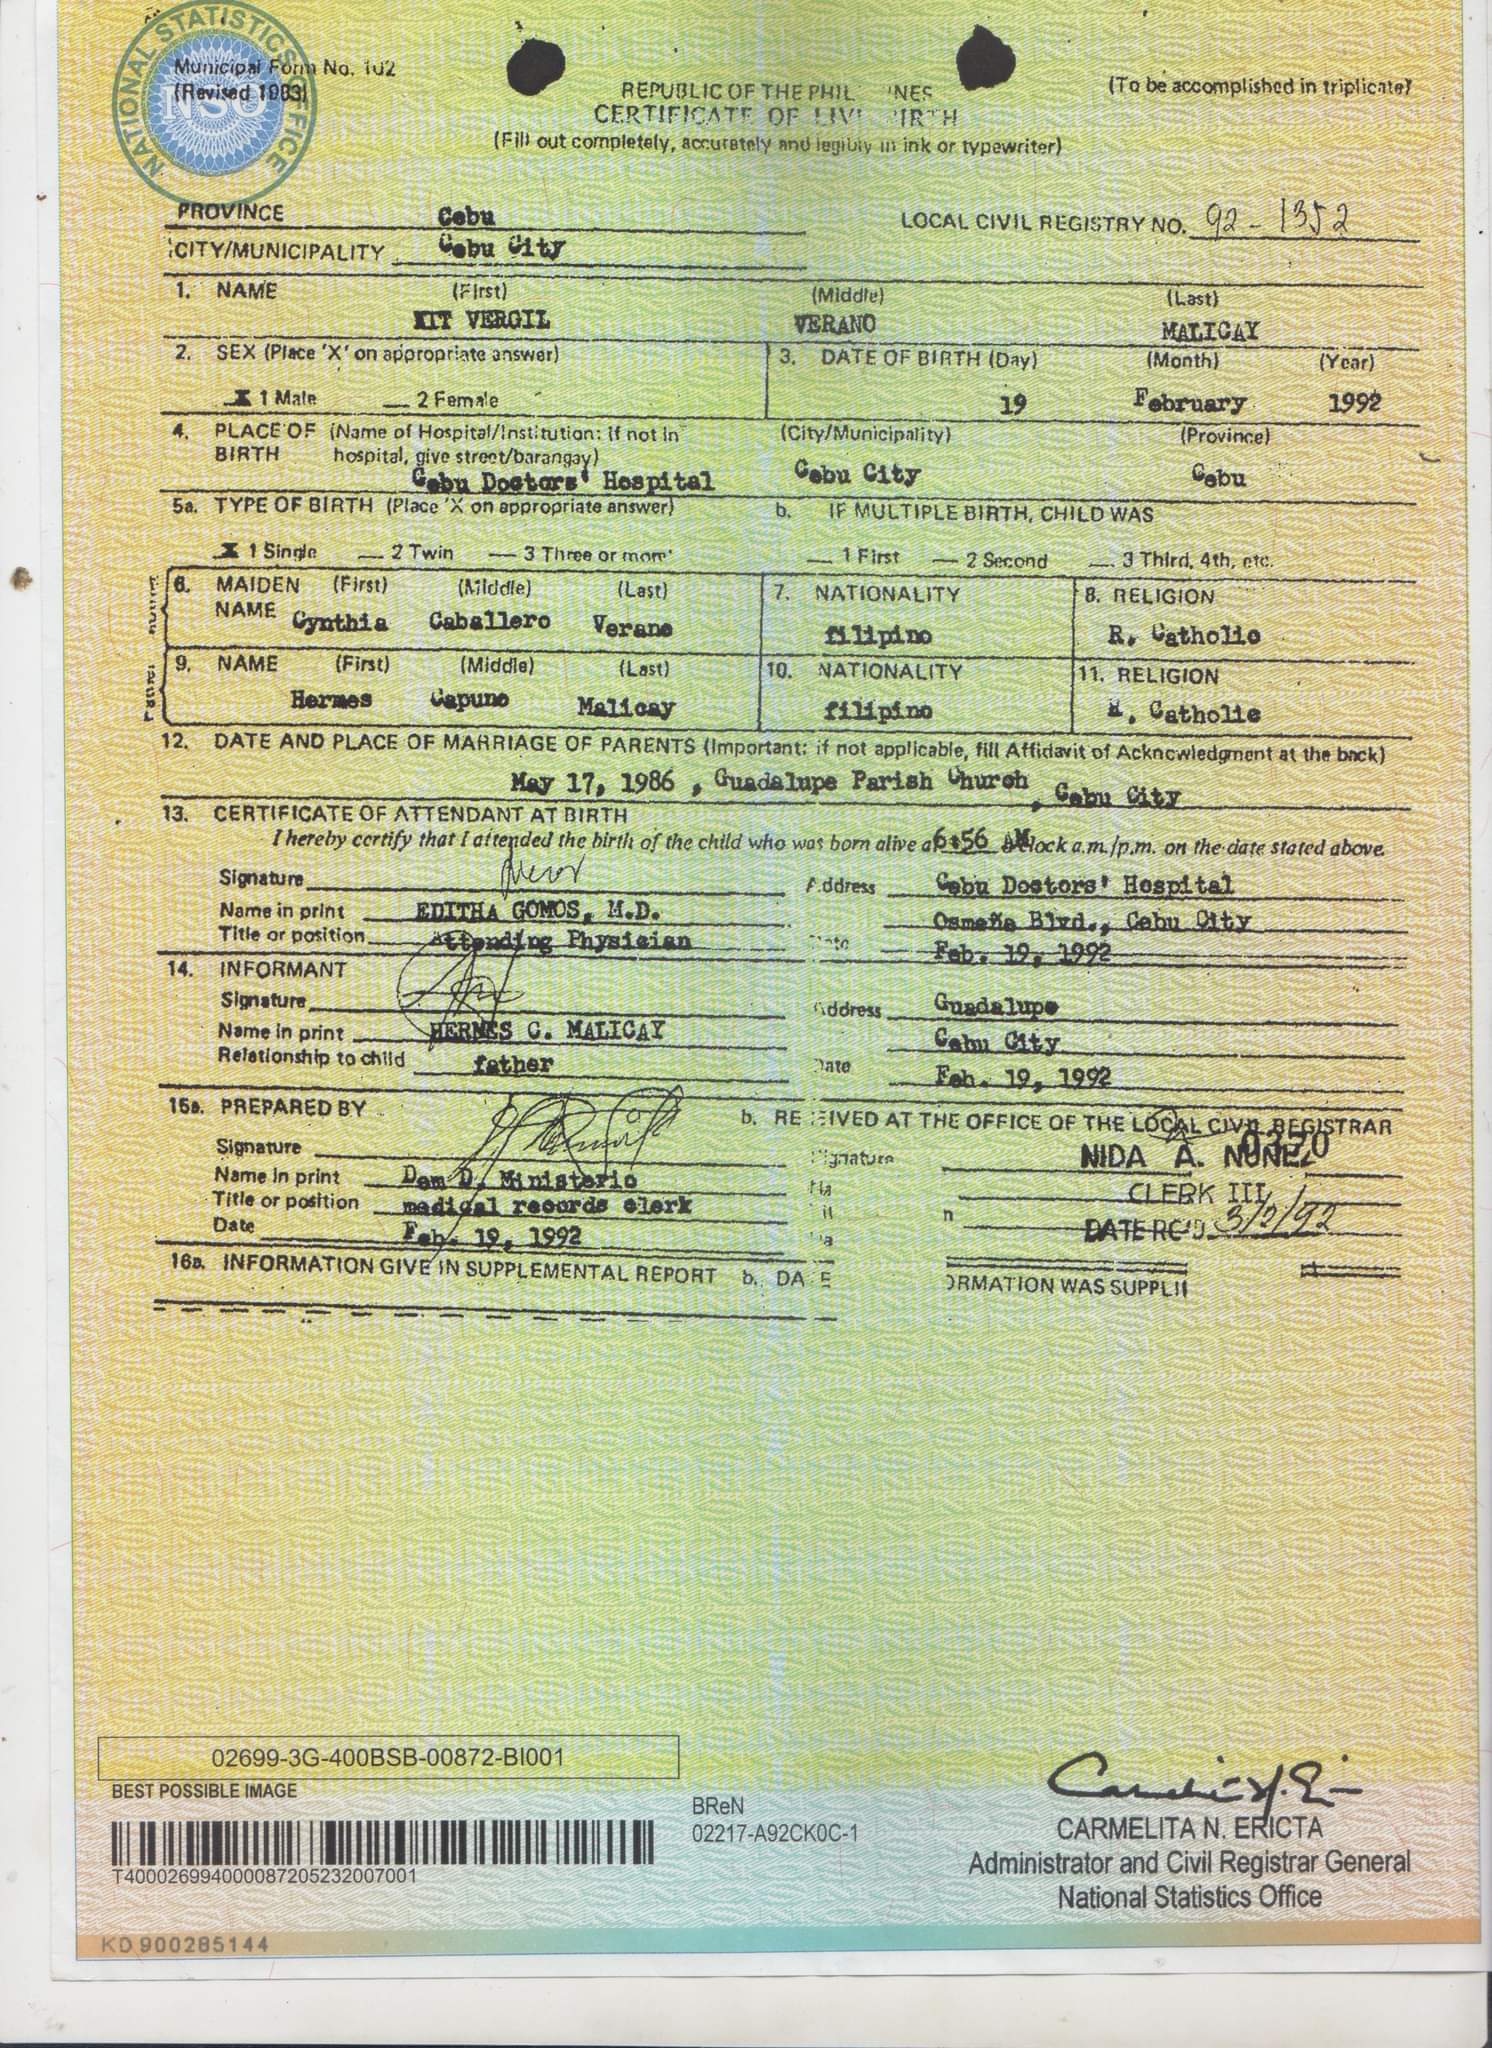 NATIONAL STATISTICS OFFICE
NSO
Municipal Form No. 102
(Revised 1983)
(To be accomplished in triplicate)
REPUBLIC OF THE PHIL INES
CERTIFICATE OF LIV BIRTH
(Fill out completely, accurately and legibly in ink or typewriter)
PROVINCE Cebu
LOCAL CIVIL REGISTRY NO. 92-1352
CITY/MUNICIPALITY Cebu City
1. NAME (First) (Middle) (Last)
KIT VERGIL VERANO MALICAY
2. SEX (Place 'X' on appropriate answer) 3. DATE OF BIRTH (Day) (Month) (Year)
X 1 Male 2 Female 19 February 1992
4. PLACE OF (Name of Hospital/Institution: if not in (City/Municipality) (Province)
BIRTH hospital, give street/barangay)
Cebu Doctors' Hospital Cebu City Cebu
5a. TYPE OF BIRTH (Place 'X on appropriate answer) b. IF MULTIPLE BIRTH, CHILD WAS
X 1 Single 2 Twin 3 Three or more 1 First 2 Second 3 Third, 4th, etc.
6. MAIDEN (First) (Middle) (Last) 7. NATIONALITY 8. RELIGION
NAME Cynthia Caballero Verano filipino R. Catholic
9. NAME (First) (Middle) (Last) 10. NATIONALITY 11. RELIGION
Hermes Capuno Malicay filipino R. Catholic
12. DATE AND PLACE OF MARRIAGE OF PARENTS (Important: if not applicable, fill Affidavit of Acknowledgment at the back)
May 17, 1986 , Guadalupe Parish Church , Cebu City
13. CERTIFICATE OF ATTENDANT AT BIRTH
I hereby certify that I attended the birth of the child who was born alive a 6:56 AM o'clock a.m./p.m. on the date stated above.
Signature Address Cebu Doctors' Hospital
Name in print EDITHA GOMOS, M.D. Osmeña Blvd., Cebu City
Title or position Attending Physician Date Feb. 19, 1992
14. INFORMANT
Signature Address Guadalupe
Name in print HERMES C. MALICAY Cebu City
Relationship to child father Date Feb. 19, 1992
15a. PREPARED BY b. RE EIVED AT THE OFFICE OF THE LOCAL CIVIL REGISTRAR
Signature Signature NIDA A. NUÑEZ 0370
Name in print Dem D. Ministerio CLERK III
Title or position medical records clerk DATE RC'D. 3/2/92
Date Feb. 19, 1992
16a. INFORMATION GIVE IN SUPPLEMENTAL REPORT b. DA E ORMATION WAS SUPPLI
02699-3G-400BSB-00872-BI001
BEST POSSIBLE IMAGE
BReN
02217-A92CK0C-1
T400026994000087205232007001
CARMELITA N. ERICTA
Administrator and Civil Registrar General
National Statistics Office
KD 900285144